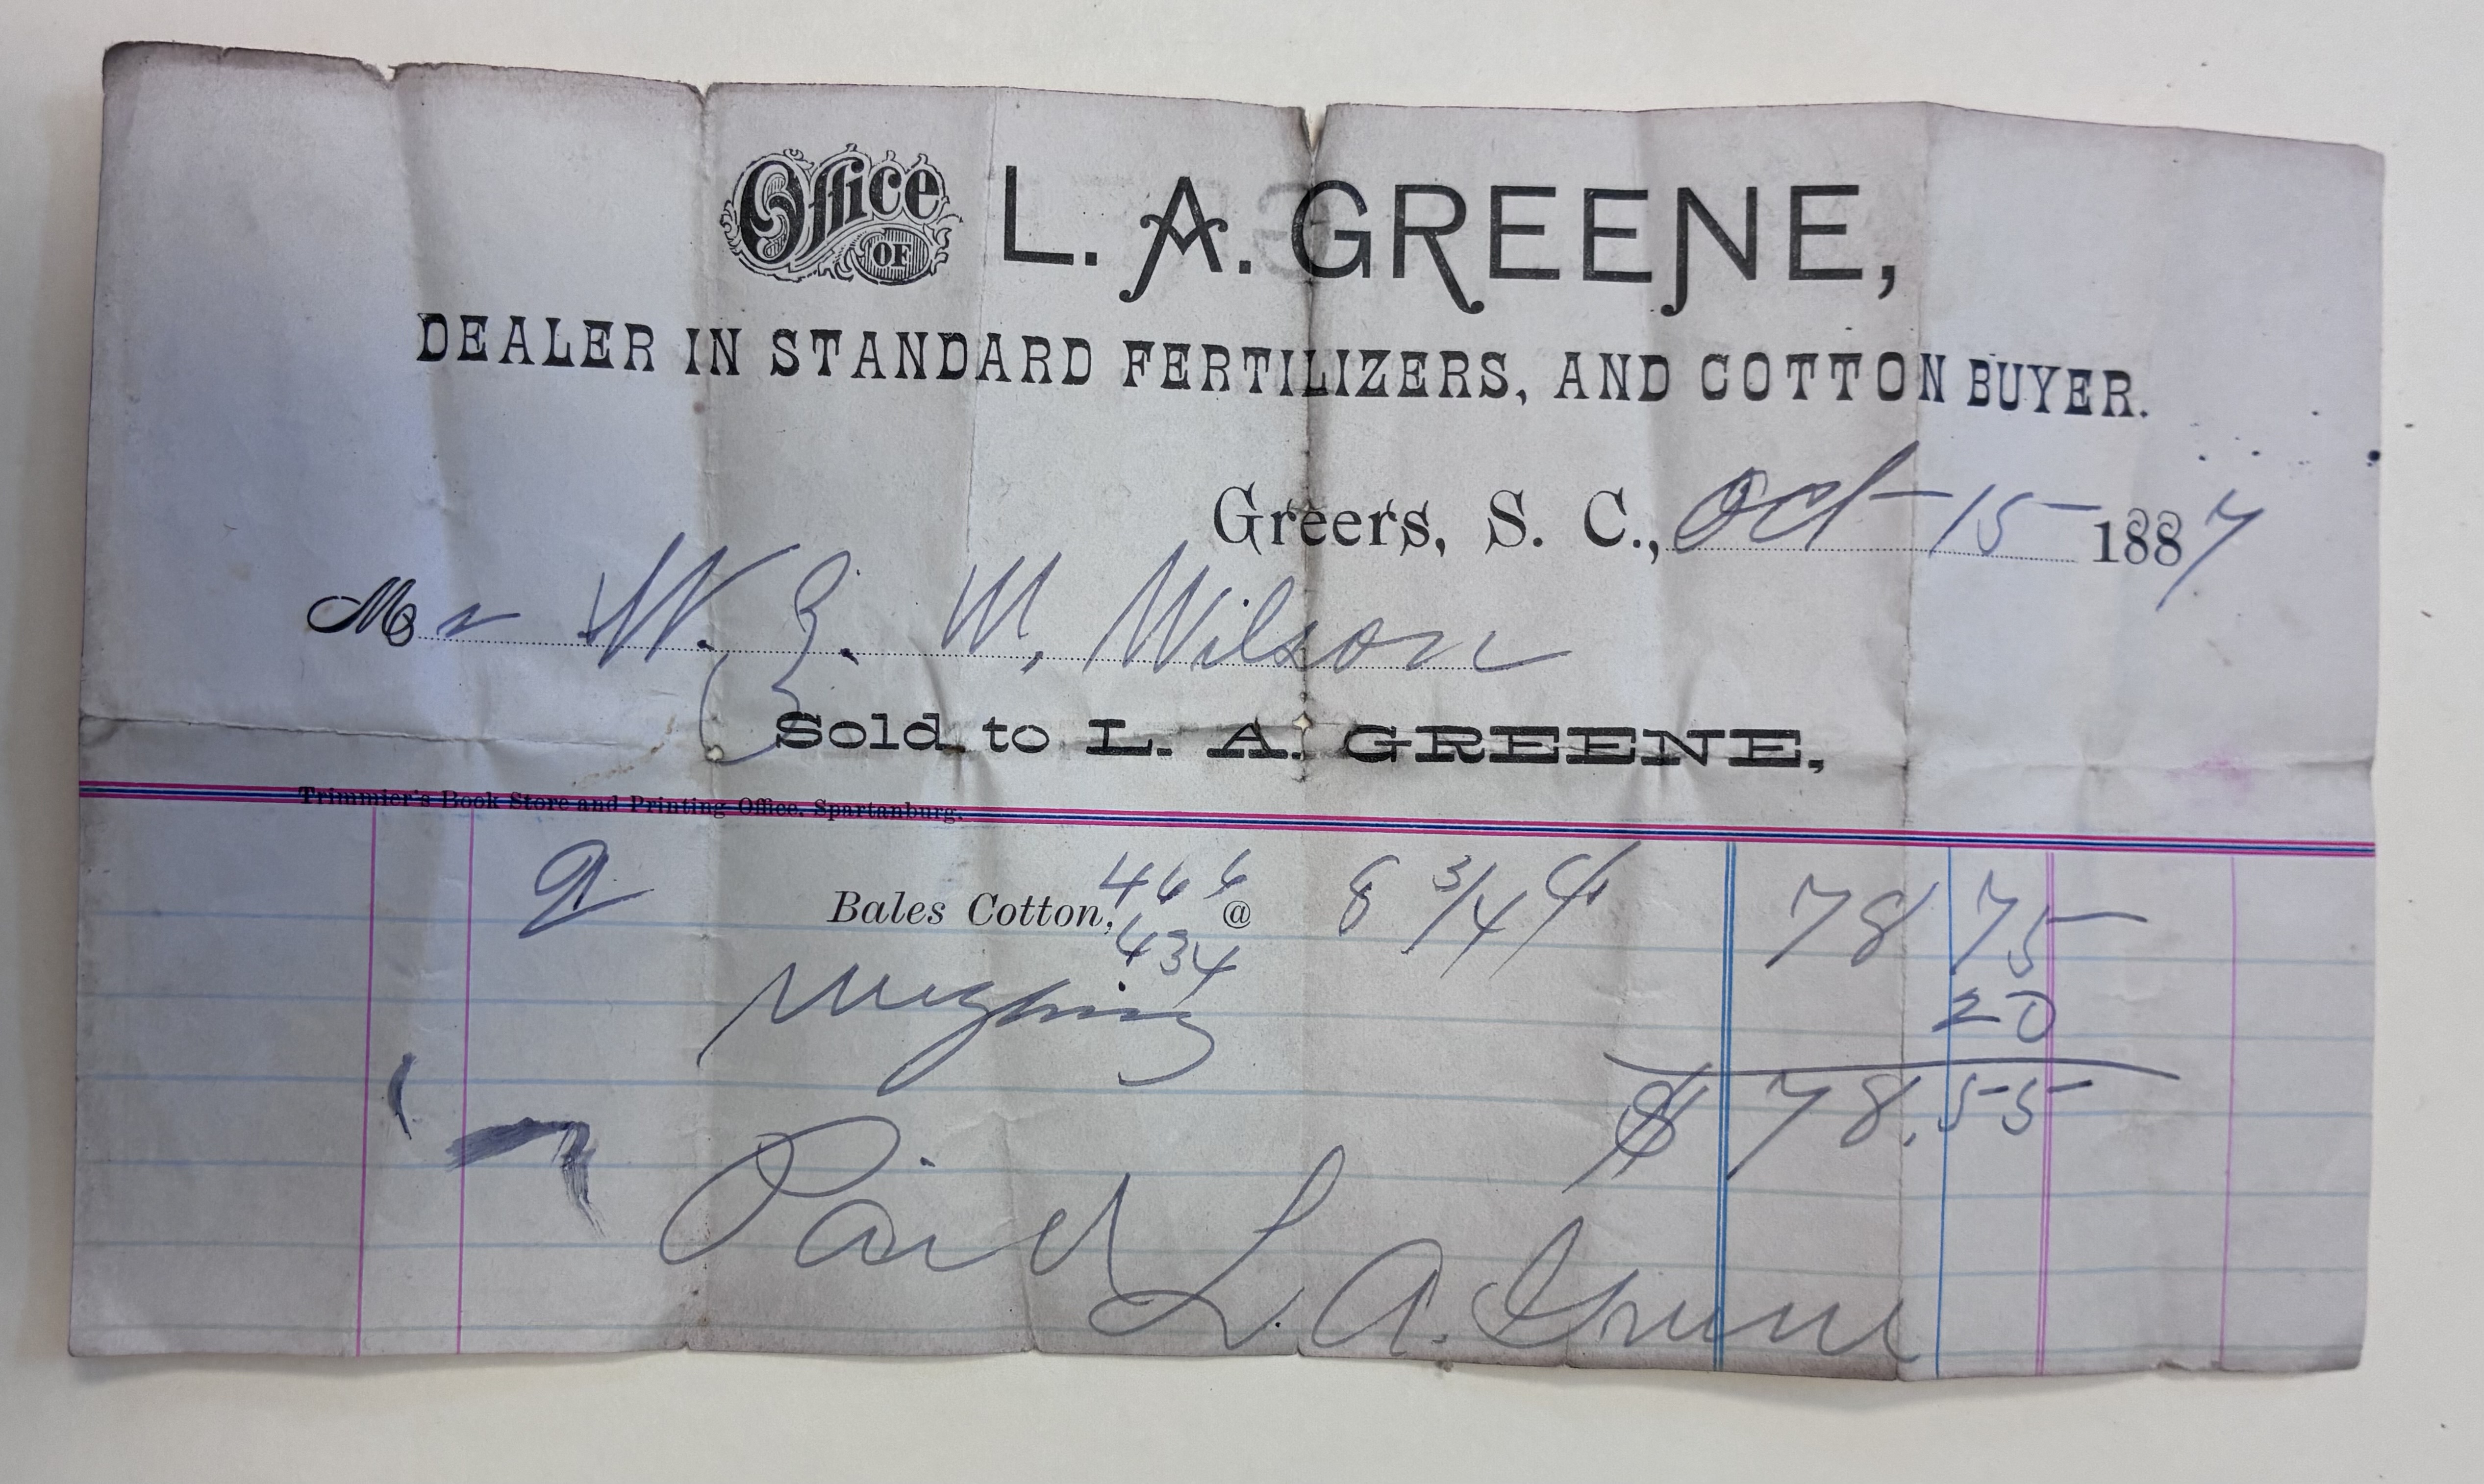 Office OF L. A. GREENE,
DEALER IN STANDARD FERTILIZERS, AND COTTON BUYER.
Greers, S. C., Oct 15 1887
Mr W. Z. Wilson
Sold to L. A. GREENE,
Trimmier's Book Store and Printing Office, Spartanburg.
2 Bales Cotton, 466 @ 8 3/4 ¢ 78 75
434
Weighing 20
$ 78.55
Paid
L. A. Greene